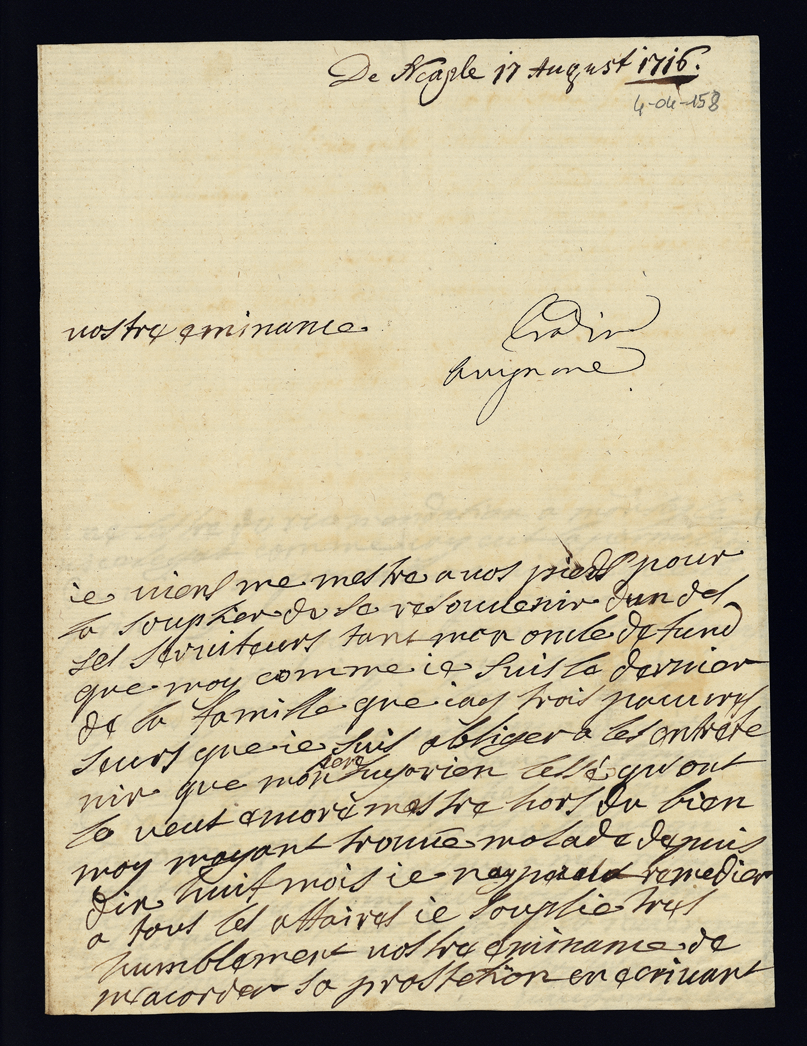 De Naple 17 August 1716.
4-04-158
vostre eminance
Avignone
ie viens me mestre a vos pieds pour
la souplier de se resouvenir dun des
ses serviteurs tant mon oncle defund
que moy comme ie suis le dernier
de la famille que iay trois pauvres
seurs que ie suis obliger a les entrete
nir que mon pere luy rien lessé qu'ont
le veut encore mestre hors du bien
moy mayant trouvé malade depuis
dix huit mois ie nay remedier
a tous les affaires ie souplie tres
humblement vostre eminance de
macorder sa prostetion en ecrivant